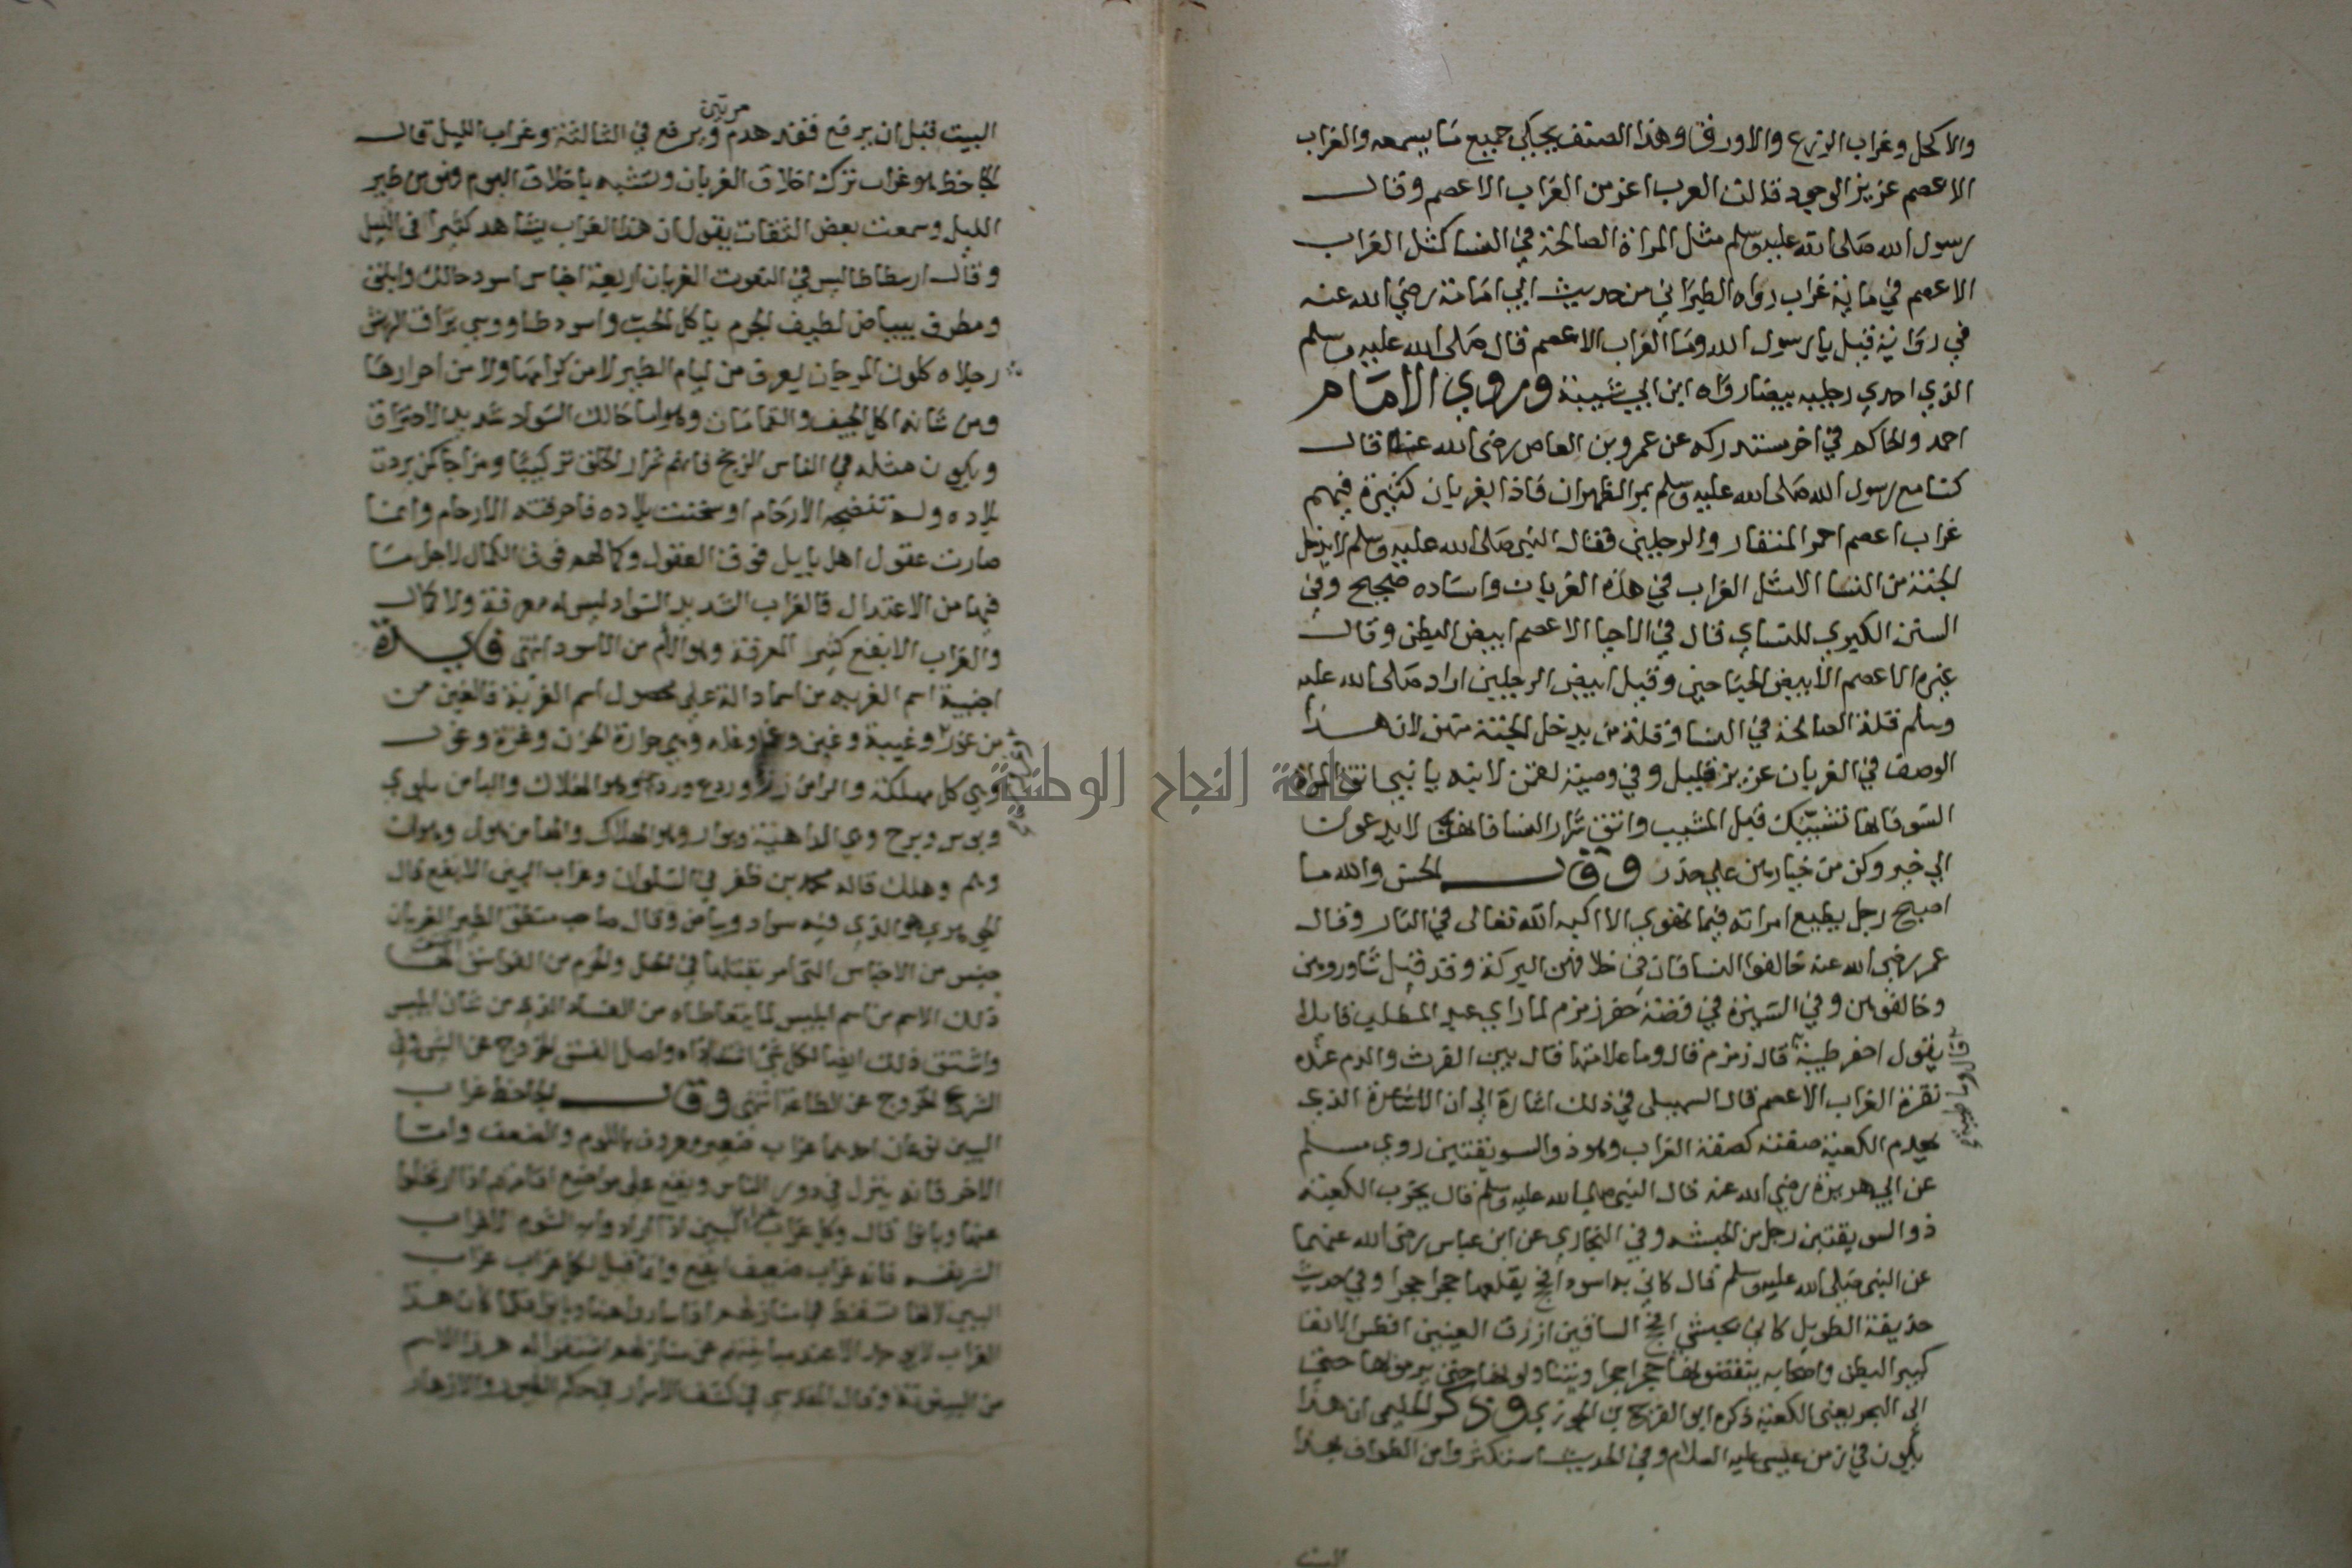 والاكحل وغراب الزرع والاورق وهذا الصنف يحكي جميع ما يسمعه والغراب
الاعصم عزيز الوجود قالت العرب اعز من الغراب الاعصم وقال
رسول الله صلى الله عليه وسلم مثل المراة الصالحة في النسا كمثل الغراب
الاعصم في ماية غراب رواه الطبراني من حديث ابي امامة رضي الله عنه
في رواية قيل يا رسول الله وما الغراب الاعصم قال صلى الله عليه وسلم
الذي احدي رجليه بيضا رواه ابن ابي شيبة وروي الامام
احمد والحاكم في اخر مستدركه عن عمرو بن العاص رضي الله عنه قال
كنا مع رسول الله صلى الله عليه وسلم بمر الظهران فاذا بغربان كثيرة فيهم
غراب اعصم احمر المنقار والرجلين فقال النبي صلى الله عليه وسلم لا يدخل
الجنة من النسا الا مثل الغراب في هذه الغربان واسناده صحيح وفي
السنن الكبري للنساي قال في الاحيا الاعصم ابيض البطن وقال
غيره الاعصم الابيض الجناحين وقيل ابيض الرجلين اراد صلى الله عليه
وسلم قلة الصالحة في النسا وقلة من يدخل الجنة منهن لان هذا
الوصف في الغربان عزيز قليل وفي وصية لقمن لابنه يا بني اتق المراة
السو فانها تشيبك قبل المشيب واتق شرار النسا فانهن لا يدعون
الي خير وكن من خيارهن علي حذر وقال الحسن والله ما
اصبح رجل يطيع امراته فيما تهوي الا اكبه الله تعالى في النار وقال
عمر رضي الله عنه خالفوا النسا فان في خلافهن البركة وقد قيل شاوروهن
وخالفوهن وفي السيرة في قصة حفر زمزم لما راي عبد المطلب قايلا
يقول احفر طيبة قال زمزم قال وما علامتها قال بين الفرث والدم عند
نقرة الغراب الاعصم قال السهيلي في ذلك اشارة الى ان الذي
يهدم الكعبة صفته كصفة الغراب وهو ذو السويقتين روي مسلم
عن ابي هريرة رضي الله عنه قال النبي صلى الله عليه وسلم قال يخرب الكعبة
ذو السويقتين رجل من الحبشه وفي البخاري عن ابن عباس رضي الله عنهما
عن النبي صلى الله عليه وسلم قال كاني به اسود افحج يقلعها حجرا حجرا وفي حديث
حذيفة الطويل كاني بحبشي افحج الساقين ازرق العينين افطس الانف
كبير البطن واصحابه ينقضونها حجرا حجرا ويتناولونها حتى يرموا بها حتى
الى البحر يعني الكعبة ذكره ابو الفرج بن الجوزي وذكر الحليمي ان هذا
يكون في زمن عيسى عليه السلام وفي الحديث استكثروا من الطواف بهذا
البيت
البيت قبل ان يرفع فقد هدم مرتين ويرفع في الثالثة وغراب الليل قال
الجاحظ هو غراب ترك اخلاق الغربان وتشبه باخلاق البوم فهو من طير
الليل وسمعت بعض الثقات يقول ان هذا الغراب يشاهد كثيرا في الليل
وقال ارسطاطاليس في النعوت الغربان اربعة اجناس اسود حالك وابلق
ومطرف ببياض لطيف الجرم ياكل الحب واسود طاووسي براق الريش
رجلاه كلون المرجان يعرف من ليام الطير لا من كرامها ولا من احرارها
ومن شانه اكل الجيف والقمامات وهو اما حالك السواد شديد الاحتراق
ويكون مثله في الناس الزنج فانهم شرار الخلق تركيبا ومزاجا كمن بردت
بلاده ولم تنضجه الارحام او سخنت بلاده فاحرقته الارحام وانما
صارت عقول اهل بابل فوق العقول وكمالهم فوق الكمال لاجل ما
فيها من الاعتدال فالغراب الشديد السواد ليس له معرفة ولا كمال
والغراب الابقع كثير المعرفة وهو الام من الاسود انتهي فايدة
اجنبية اسم الغربه من اسما دالة علي محصول اسم الغربة فالغين من
وهي كل مهلكة والرا من وردع وهو الهلاك والبا من بلوي
وبوس وبرح وهي الداهية وبوار وهو الهلاك والها من هول وهوان
وهم وهلك قاله محمد بن ظفر في السلوان وغراب البين الابقع قال
الجوهري هو الذي فيه سواد وبياض وقال صاحب منطق الطير الغربان
جنس من الاجناس التي امر بقتلها في الحل والحرم من الفواسق
ذلك الاسم من اسم ابليس لما يتعاطاه من الفساد الذي من شان ابليس
واشتق ذلك ايضا لكل شي اشتد اذاه واصل الفسق الخروج عن الشي وفي
الشرع الخروج عن الطاعة انتهي وقال الجاحظ غراب
البين نوعان احدهما غراب صغير معروف باللوم والضعف واما
الاخر فانه ينزل في دور الناس ويقع على مواضع اقامتهم اذا ارتحلوا
عنها وبانوا قال وكل غراب البين اذا ارادوا به الشوم
فانه غراب صغير ابقع وانما قيل لكل غراب غراب
البين لانها تسقط في منازلهم اذا ساروا عنها وبانوا فلما كان هذا
الغراب لا يوجد الا عند مباينتهم عن منازلهم اشتقوا له هذا الاسم
من البينونة وقال المقدسي في كشف الاسرار في حكم الطيور والازهار
جامعة النجاح الوطنية